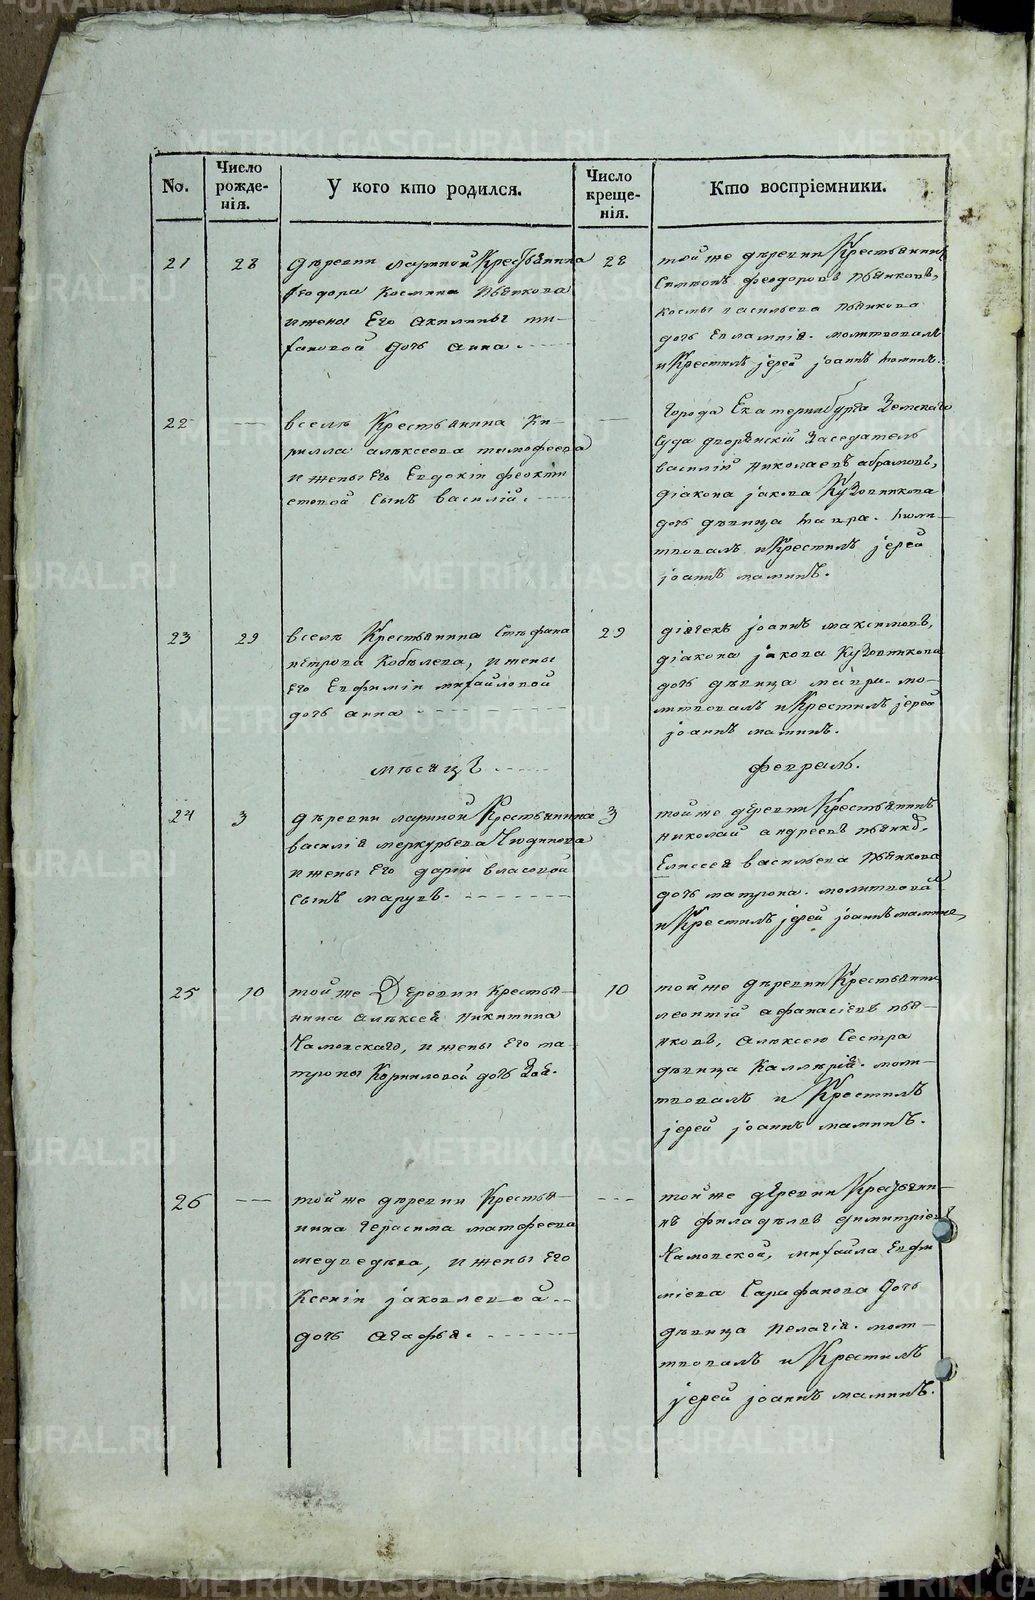 No.
Число рожде-нія.
У кого кто родился.
Число креще-нія.
Кто воспріемники.
21 28
деревни лариной Крестьянина
феодора Космина пьянкова
и жены Его акилины ти-
фановой дочь анна.
28
той же деревни Крестьянинъ
Симеонъ феодоровъ пьянковъ,
космы васильева пьянкова
дочь Евлампія. молитвовалъ
и Крестилъ јерей јоаннъ маминъ.
22
вселѣ Крестьянина Ки-
рилла алѣксеева тимофеева
и жены Его Евдокіи феокти
стовой сынъ василій.
города Екатеринбурга Земскаго
суда дворянскій Заседатель
василій николаевъ абрамовъ,
діакона јакова Кузовникова
дочь дѣвица мавра. моли-
твовалъ и Крестилъ јерей
јоаннъ маминъ.
23 29
вселѣ Крестьянина Стефана
петрова Кобѣлева, и жены
Его Евфиміи михайловой
дочь анна
29
діячекъ јоаннъ максимовъ,
діакона јакова Кузовникова
дочь дѣвица мавра. мо-
литвовалъ и Крестилъ јерей
јоаннъ маминъ.
мѣсяцъ
февраль.
24 3
деревни лариной Крестьянина
василія меркурьева Чюдинова
и жены Его даріи власовой
сынъ маруѳъ.
3
той же деревни Крестьянинъ
николай андреевъ пьянко,
Елиссея васильева пьянкова
дочь матрона. молитвовалъ
и Крестилъ јерей јоаннъ маминъ,
25 10
той же Деревни крестья-
нина алѣксея никитина
Чамовскаго, и жены Его ма-
троны Корниловой дочь Зоя.
10
той же деревни Крестьянинъ
леонтій афанасіевъ пья-
нковъ, алѣксею сестра
дѣвица Каллерія. моли-
твовалъ и Крестилъ
јерей јоаннъ маминъ.
26
той же деревни Крестья-
нина герасима матфеева
медведѣва, и жены Его
Ксеніи јаковлевой
дочь агафья.
той же деревни Крестьяни-
нъ филадѣлвъ димитріевъ
Чамовской, михайла Евфи
міева Сарафанова дочь
дѣвица пелагія. моли-
твовалъ и Крестилъ
јерей јоаннъ маминъ.
METRIKI.GASO-URAL.RU